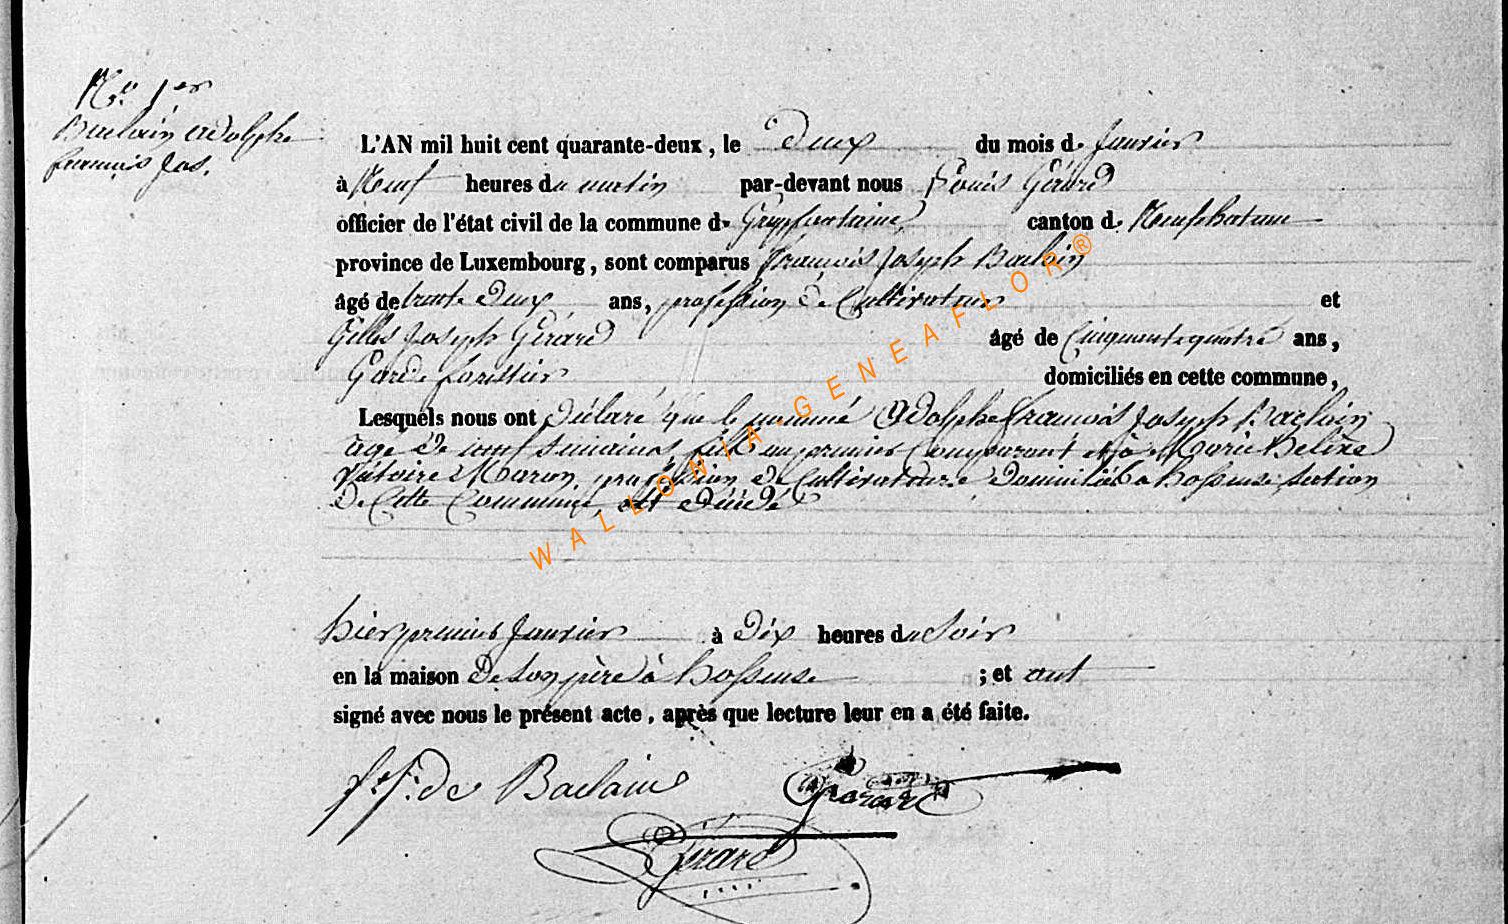 N.° 1er
Baclain Adolphe
françois Jos.
L'AN mil huit cent quarante-deux, le Deux du mois de Janvier
à Neuf heures du matin par-devant nous Louis Gérard
officier de l'état civil de la commune de Grapfontaine canton de Neufchateau
province de Luxembourg, sont comparus François Joseph Baclain
âgé de trente Deux ans, profession de Cultivateur et
Gilles Joseph Gérard âgé de Cinquante quatre ans,
Garde forestier domiciliés en cette commune,
Lesquels nous ont Déclaré que le nommé Adolphe François Joseph Baclain
agé de semaines, fils au premier Comparant et à Marie
Maron, profession de Cultivateur Domicilié à hosseuse section
De Cette Commune, est Décédé
hier premier Janvier à Dix heures du Soir
en la maison De Son père à hosseuse ; et ont
signé avec nous le présent acte, après que lecture leur en a été faite.
f. J. de Baclain Gérard
Gérard
WALLONIA-GENEAFLOR®